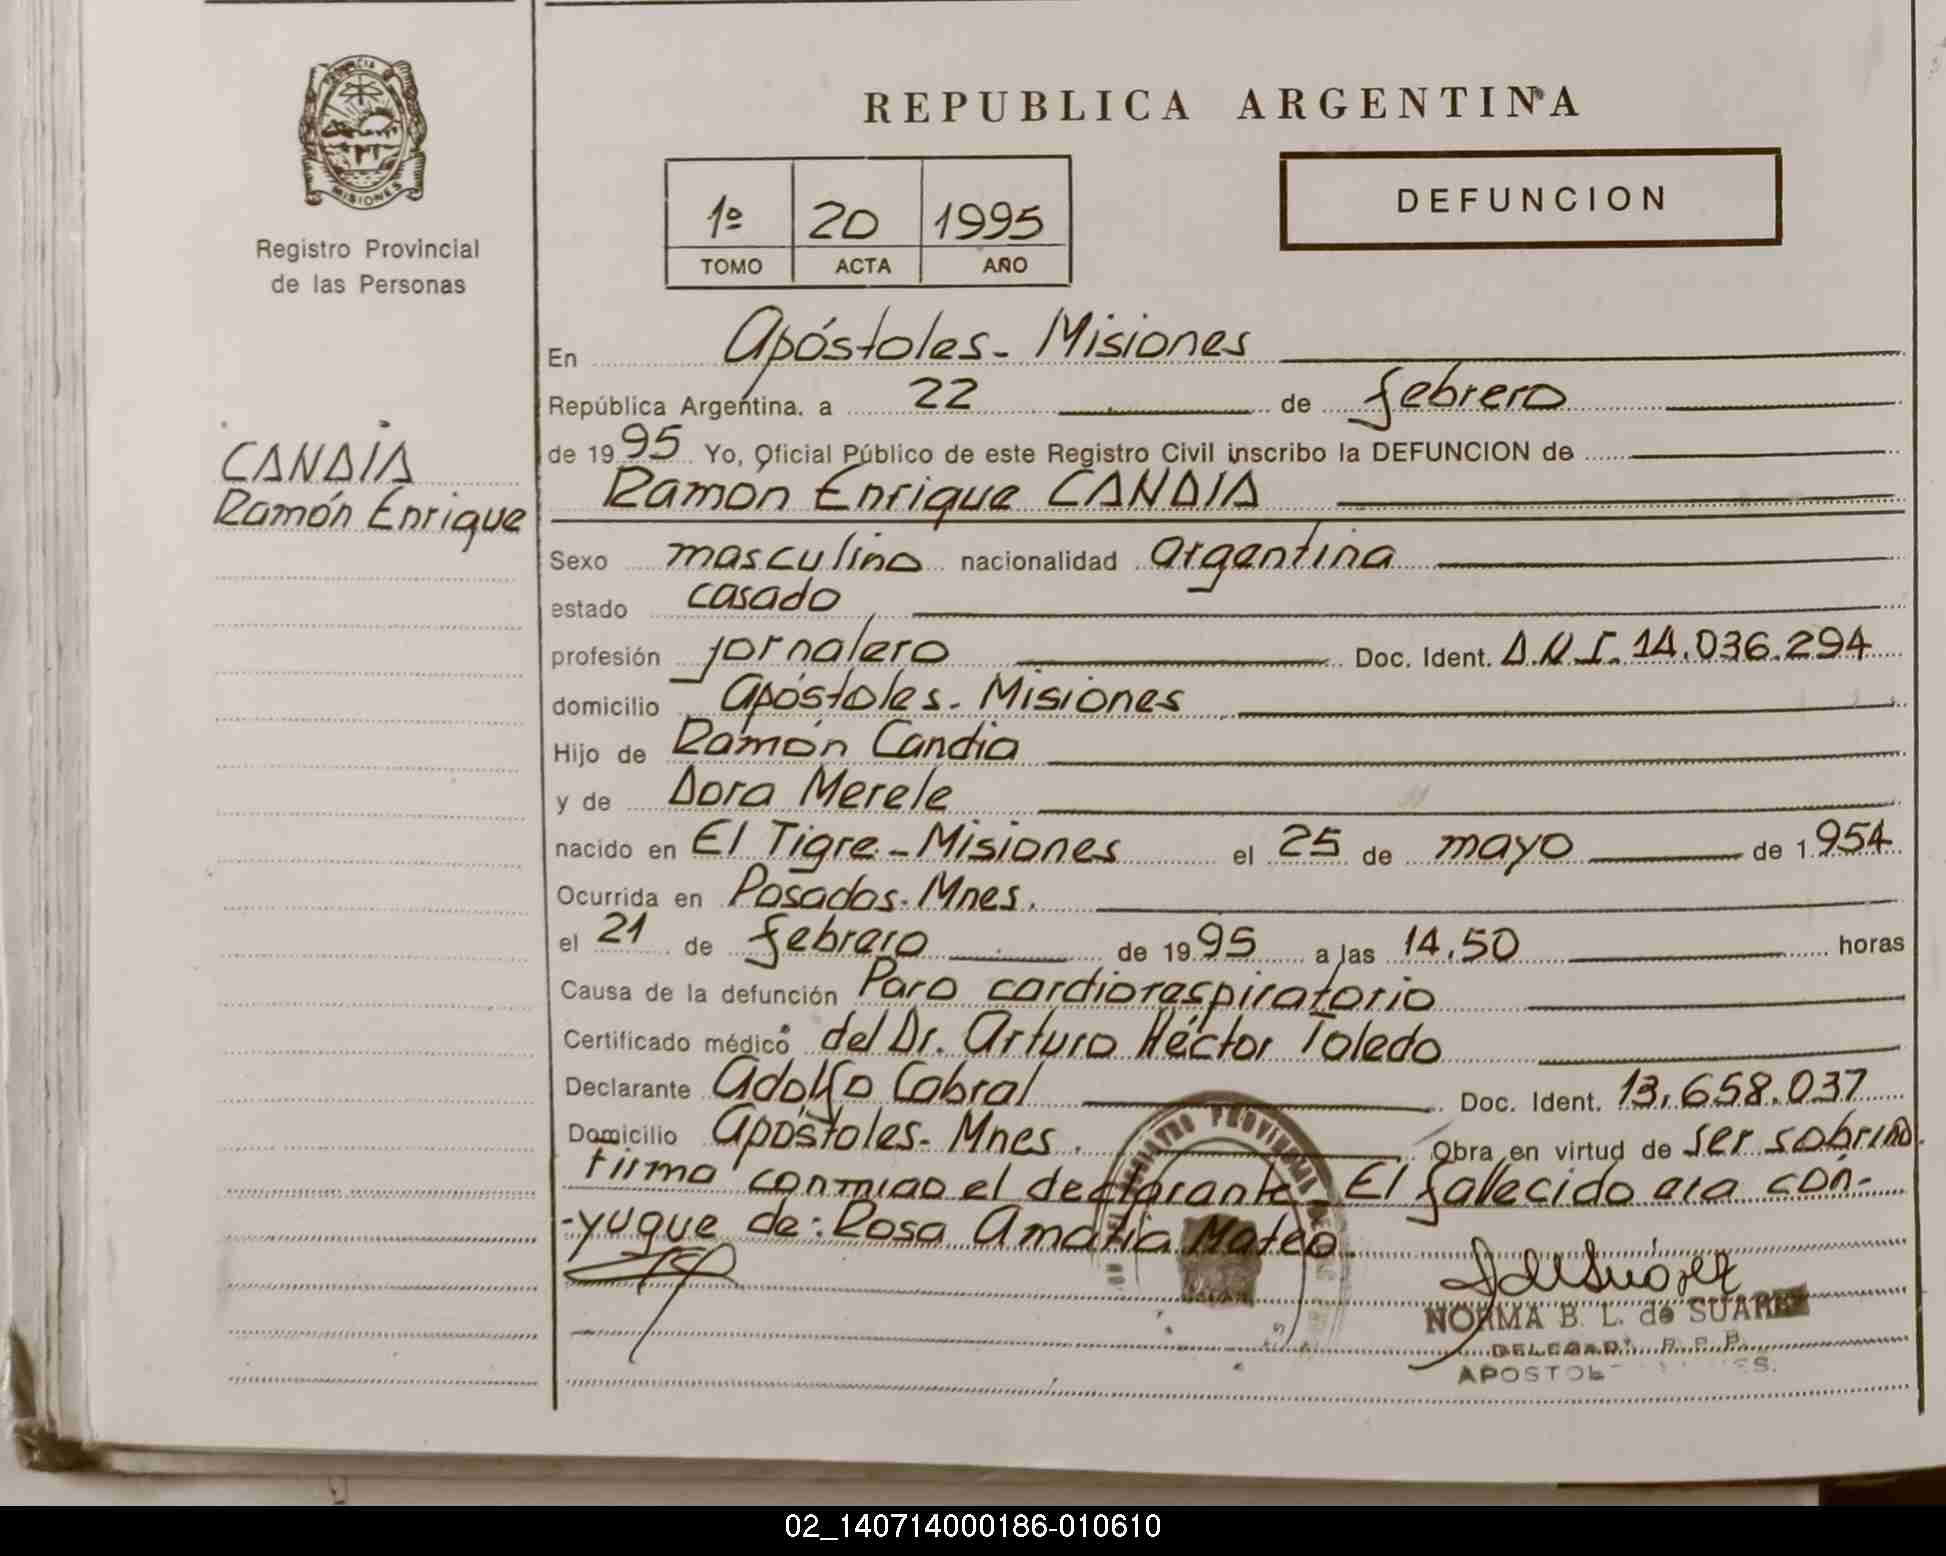 PROVINCIA
MISIONES
Registro Provincial
de las Personas
REPUBLICA ARGENTINA
1º 20 1995
TOMO ACTA AÑO
DEFUNCION
CANDIA
Ramón Enrique
En Apóstoles - Misiones
República Argentina, a 22 de febrero
de 1995 Yo, Oficial Público de este Registro Civil inscribo la DEFUNCION de
Ramon Enrique CANDIA
Sexo masculino nacionalidad argentina
estado casado
profesión jornalero Doc. Ident. D.N.I. 14.036.294
domicilio Apóstoles - Misiones
Hijo de Ramón Candia
y de Dora Merele
nacido en El Tigre - Misiones el 25 de mayo de 1954
Ocurrida en Posadas - Mnes.
el 21 de febrero de 1995 a las 14.50 horas
Causa de la defunción Paro cardiorespiratorio
Certificado médico del Dr. Arturo Héctor Toledo
Declarante Adolfo Cabral Doc. Ident. 13.658.037
Domicilio Apóstoles - Mnes. Obra en virtud de ser sobrino.
Firma conmigo el declarante - El fallecido era cón-
-yugue de: Rosa Amalia Mateo.
NORMA B. L. de SUAREZ
DELEGADA R. P. P.
02_140714000186-010610